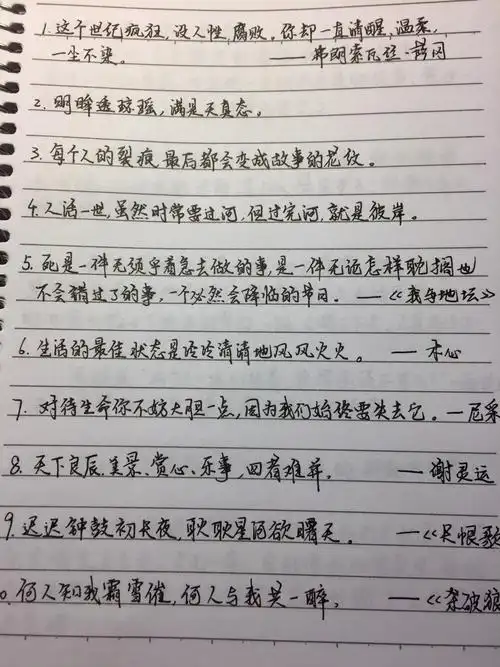 1. 这个世纪疯狂,没人性,腐败。你却一直清醒,温柔,
一尘不染。 —— 弗朗索瓦丝·萨冈
2. 明眸透琼瑶,满是天真态。
3. 每个人的裂痕,最后都会变成故事的花纹。
4. 人活一世,虽然时常要过河,但过完河,就是彼岸。
5. 死是一件无须乎着急去做的事,是一件无论怎样耽搁也
不会错过了的事,一个必然会降临的节日。 —《我与地坛》
6. 生活的最佳状态是冷冷清清地风风火火。 — 木心
7. 对待生命你不妨大胆一点,因为我们始终要失去它。—尼采
8. 天下良辰、美景、赏心、乐事,四者难并。 —谢灵运
9. 迟迟钟鼓初长夜,耿耿星河欲曙天。 —《长恨歌
0. 何人知我霜雪催,何人与我共一醉。 —《杀破狼